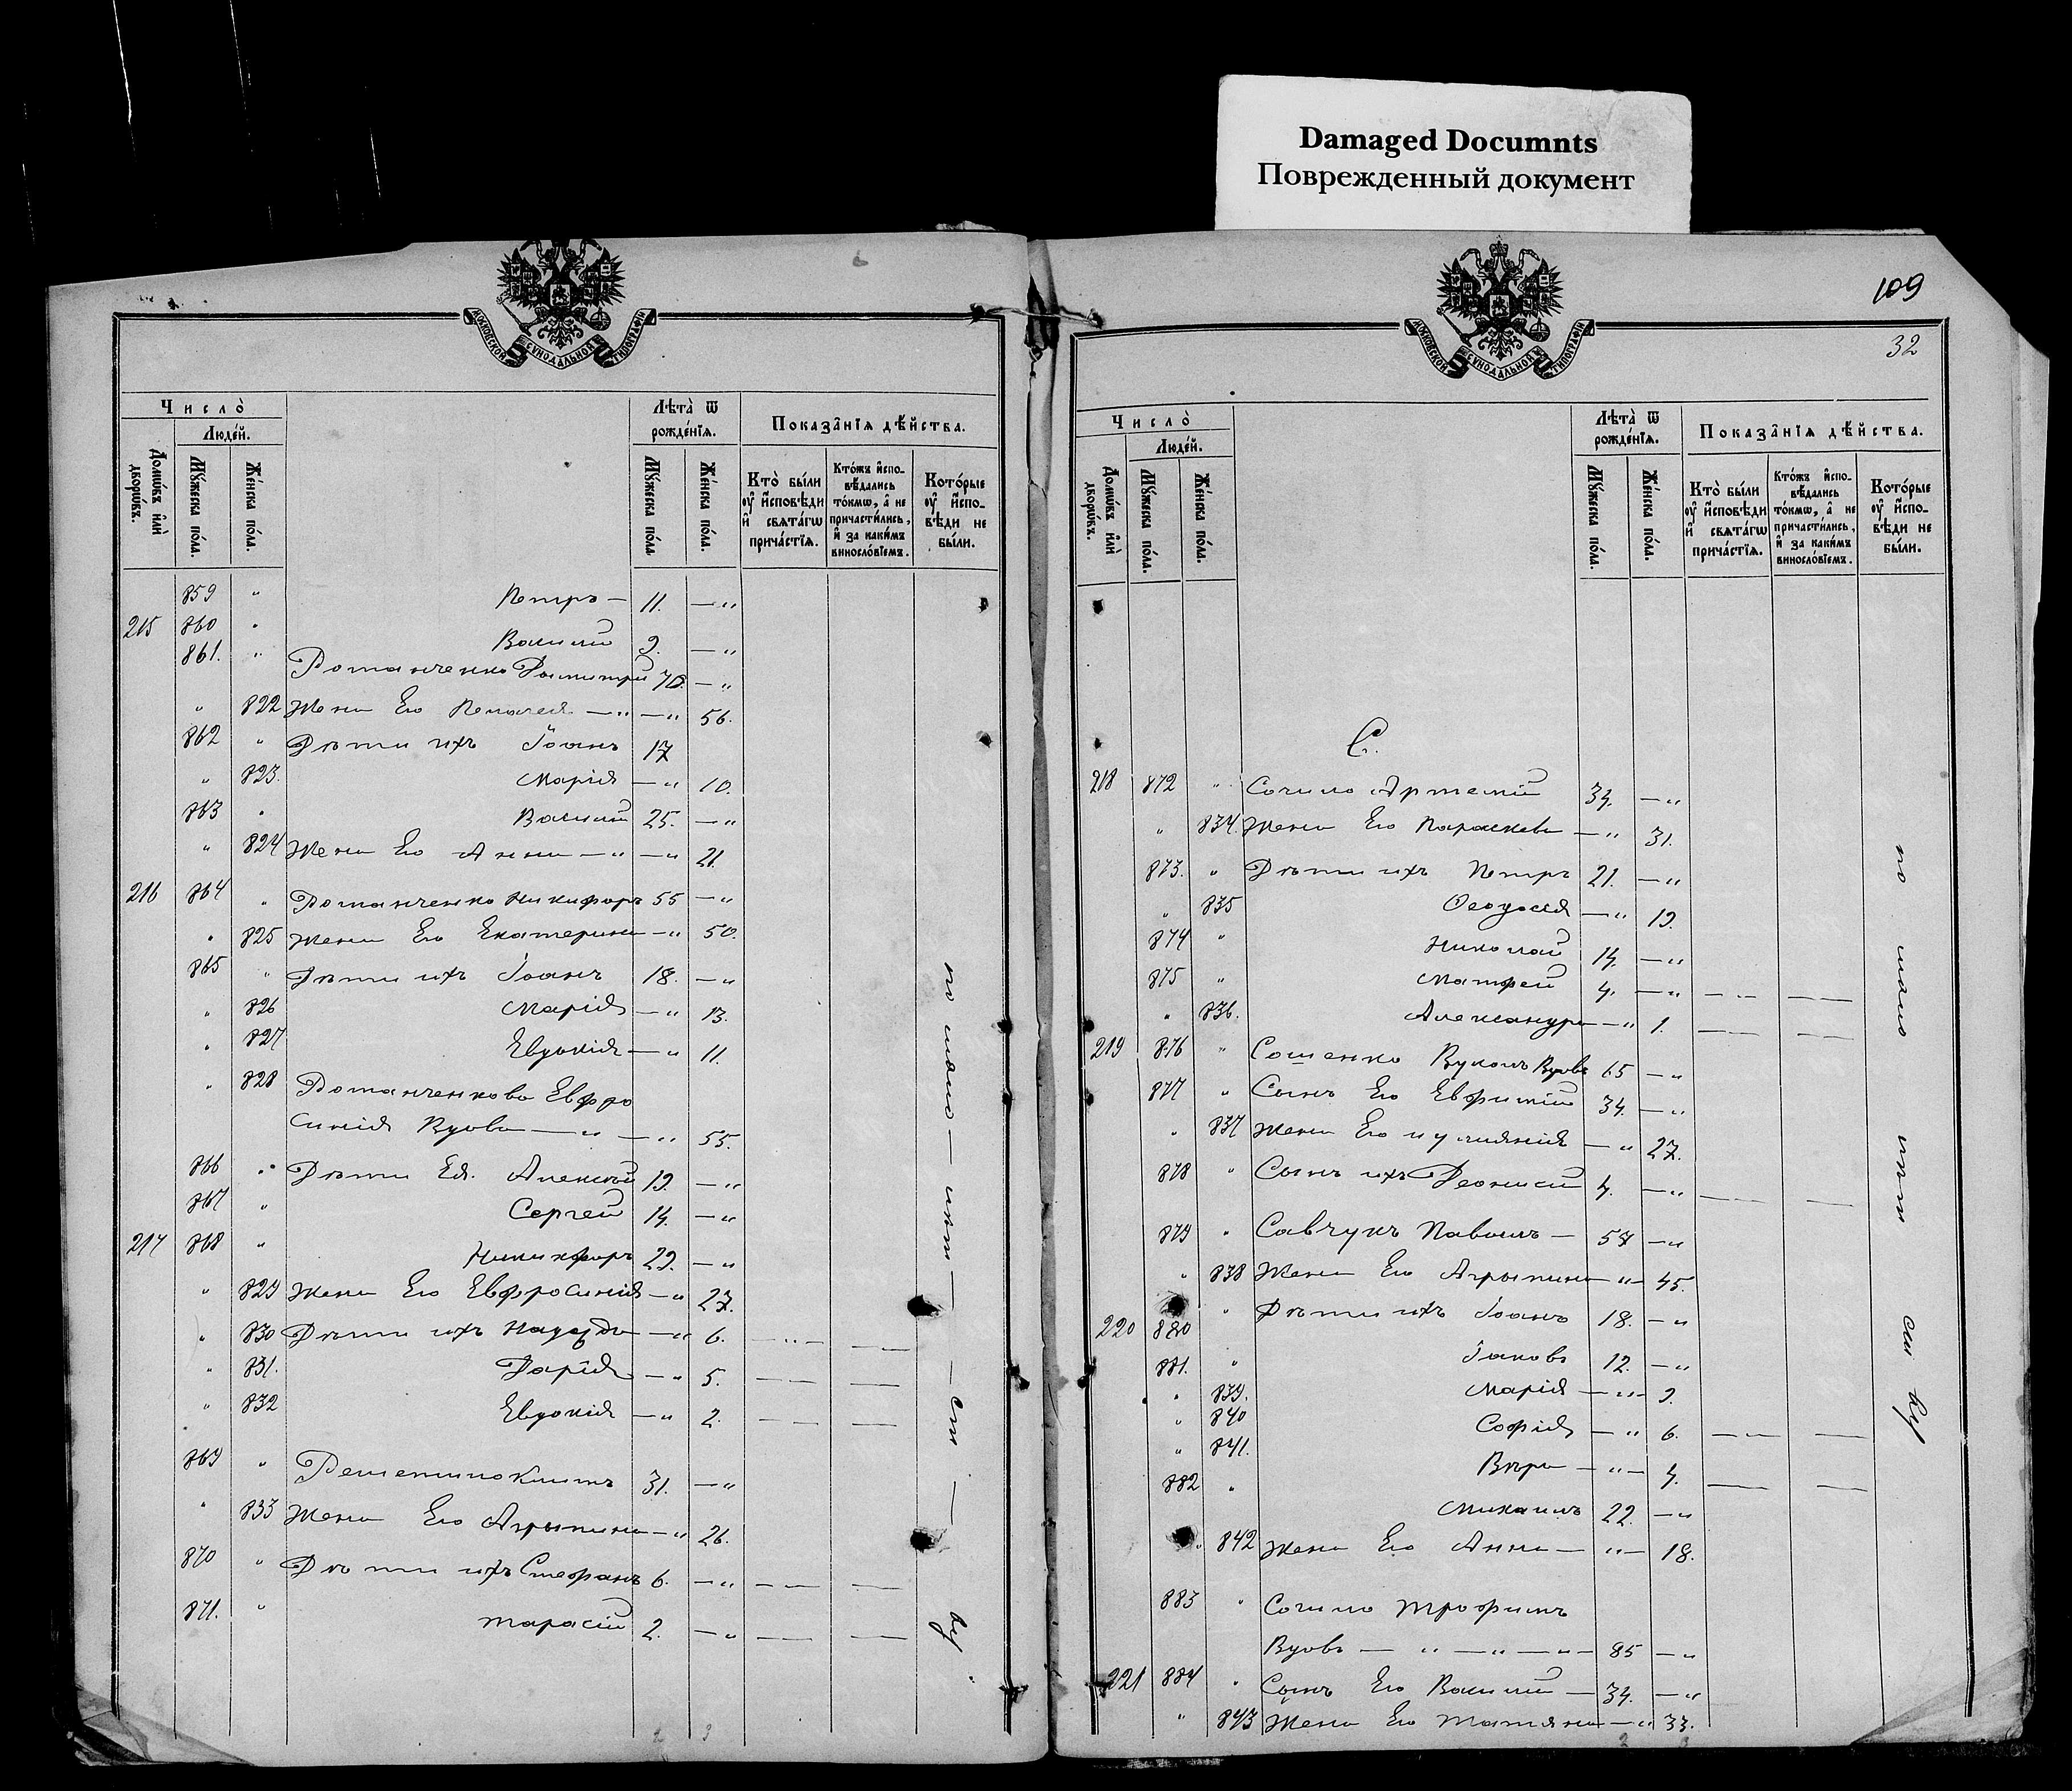 Damaged Documnts
Поврежденный документ
109
32
МОСКОВСКОЙ СѴНОДАЛЬНОЙ ТИПОГРАФІИ
Число̀
Людéй.
Домѡ́въ и҆лѝ дворѡ́въ.
Мꙋ́жеска по́ла.
Же́нска по́ла.
Лѣта̀ ѿ рожде́нїѧ.
Мꙋ́жеска по́ла
Же́нска по́ла.
Показа̑нїѧ дѣ́йства.
Кто̀ бы́ли
ᲂу҆ и҆сповѣди
и҆ свѧта́гѡ
прича́стїѧ.
Кто́жъ и҆спо-
вѣдались
то́кмѡ, а҆ не
причасти́лись,
и҆ за каки́мъ
виносло́вїемъ.
Кото́рые
ᲂу҆ и҆спо-
вѣди не
бы́ли.
859 " Петръ — 11. — "
215 860 " Василій 9. — "
861. " Романченко Димитрій 70. — "
" 822 Жена Его Пелагея — " — " 56.
862 " Дѣти ихъ Іоанъ 17
" 823. Марія — " 10.
863 " Василій 25. — "
" 824 Жена Его Анна — " — " 21.
216 864 " Романченко Никифоръ 55 — "
" 825 Жена Его Екатерина — " 50.
865 " Дѣти ихъ Іоанъ 18. — "
" 826 Марія — " 13.
" 827 Евдокія — " 11.
" 828 Романченкова Евфро
синія Вдова — " — " 55.
866 " Дѣти Ея. Алексѣй 19. — "
867 " Сергей 14. — "
217 868 " Никифоръ 29. — "
" 829 Жена Его Евфросинія — " 27.
" 830 Дѣти ихъ Надежда — " 6. — " —
" 831. Дарія — " 5. — —
" 832 Евдокія — " 2. — —
869 " Решетило Климъ 31. — "
" 833 Жена Его Агрыпина — " 26.
870 " Дѣти ихъ Стефанъ 6. — " — —
871. " Тарасій 2. — " — —
Число̀
Людéй.
Домѡ́въ и҆лѝ дворѡ́въ.
Мꙋ́жеска по́ла.
Же́нска по́ла.
МОСКОВСКОЙ СѴНОДАЛЬНОЙ ТИПОГРАФІИ
Лѣта̀ ѿ рожде́нїѧ.
Мꙋ́жеска по́ла.
Же́нска по́ла.
Показа̑нїѧ дѣ́йства.
Кто̀ бы́ли
ᲂу҆ и҆сповѣди
и҆ свѧта́гѡ
прича́стїѧ.
Кто́жъ и҆спо-
вѣдались
то́кмѡ, а҆ не
причасти́лись,
и҆ за каки́мъ
виносло́вїемъ.
Кото́рые
ᲂу҆ и҆спо-
вѣди не
бы́ли.
С.
218 872 " Сочило Артемій 34. — "
" 834. Жена Его Параскева — " 31.
873. " Дѣти ихъ Петръ 21. — "
" 835 Ѳеодосія — " 19.
874 " Николай 14. — "
875 " Матфей 4. — " — —
" 836. Александра — " 1. — —
219 876 " Сошенко Вуколъ Вдовъ 65 — "
877 " Сынъ Его Евфимій 34. — "
" 837 Жена Его Иуліянія — " 27.
878 " Сынъ ихъ Деонисій 4. — " — —
879 " Савчукъ Павелъ — 57 — "
" 838 Жена Его Агрыпина — " — 45.
220 880 " Дѣти ихъ Іоанъ 18. — "
881. " Іаковъ 12. — "
" 839. Марія — " — 9.
" 840 Софія — " 6. — —
" 841. Вѣра — " — 4. — —
882 " Михаилъ 22. — "
" 842 Жена Его Анна — " — 18.
883 " Сочило Трофимъ
Вдовъ — " — " — " — 85 — "
221 884 " Сынъ Его Василій — 34. — "
" 843 Жена Его Татяна — " 33.